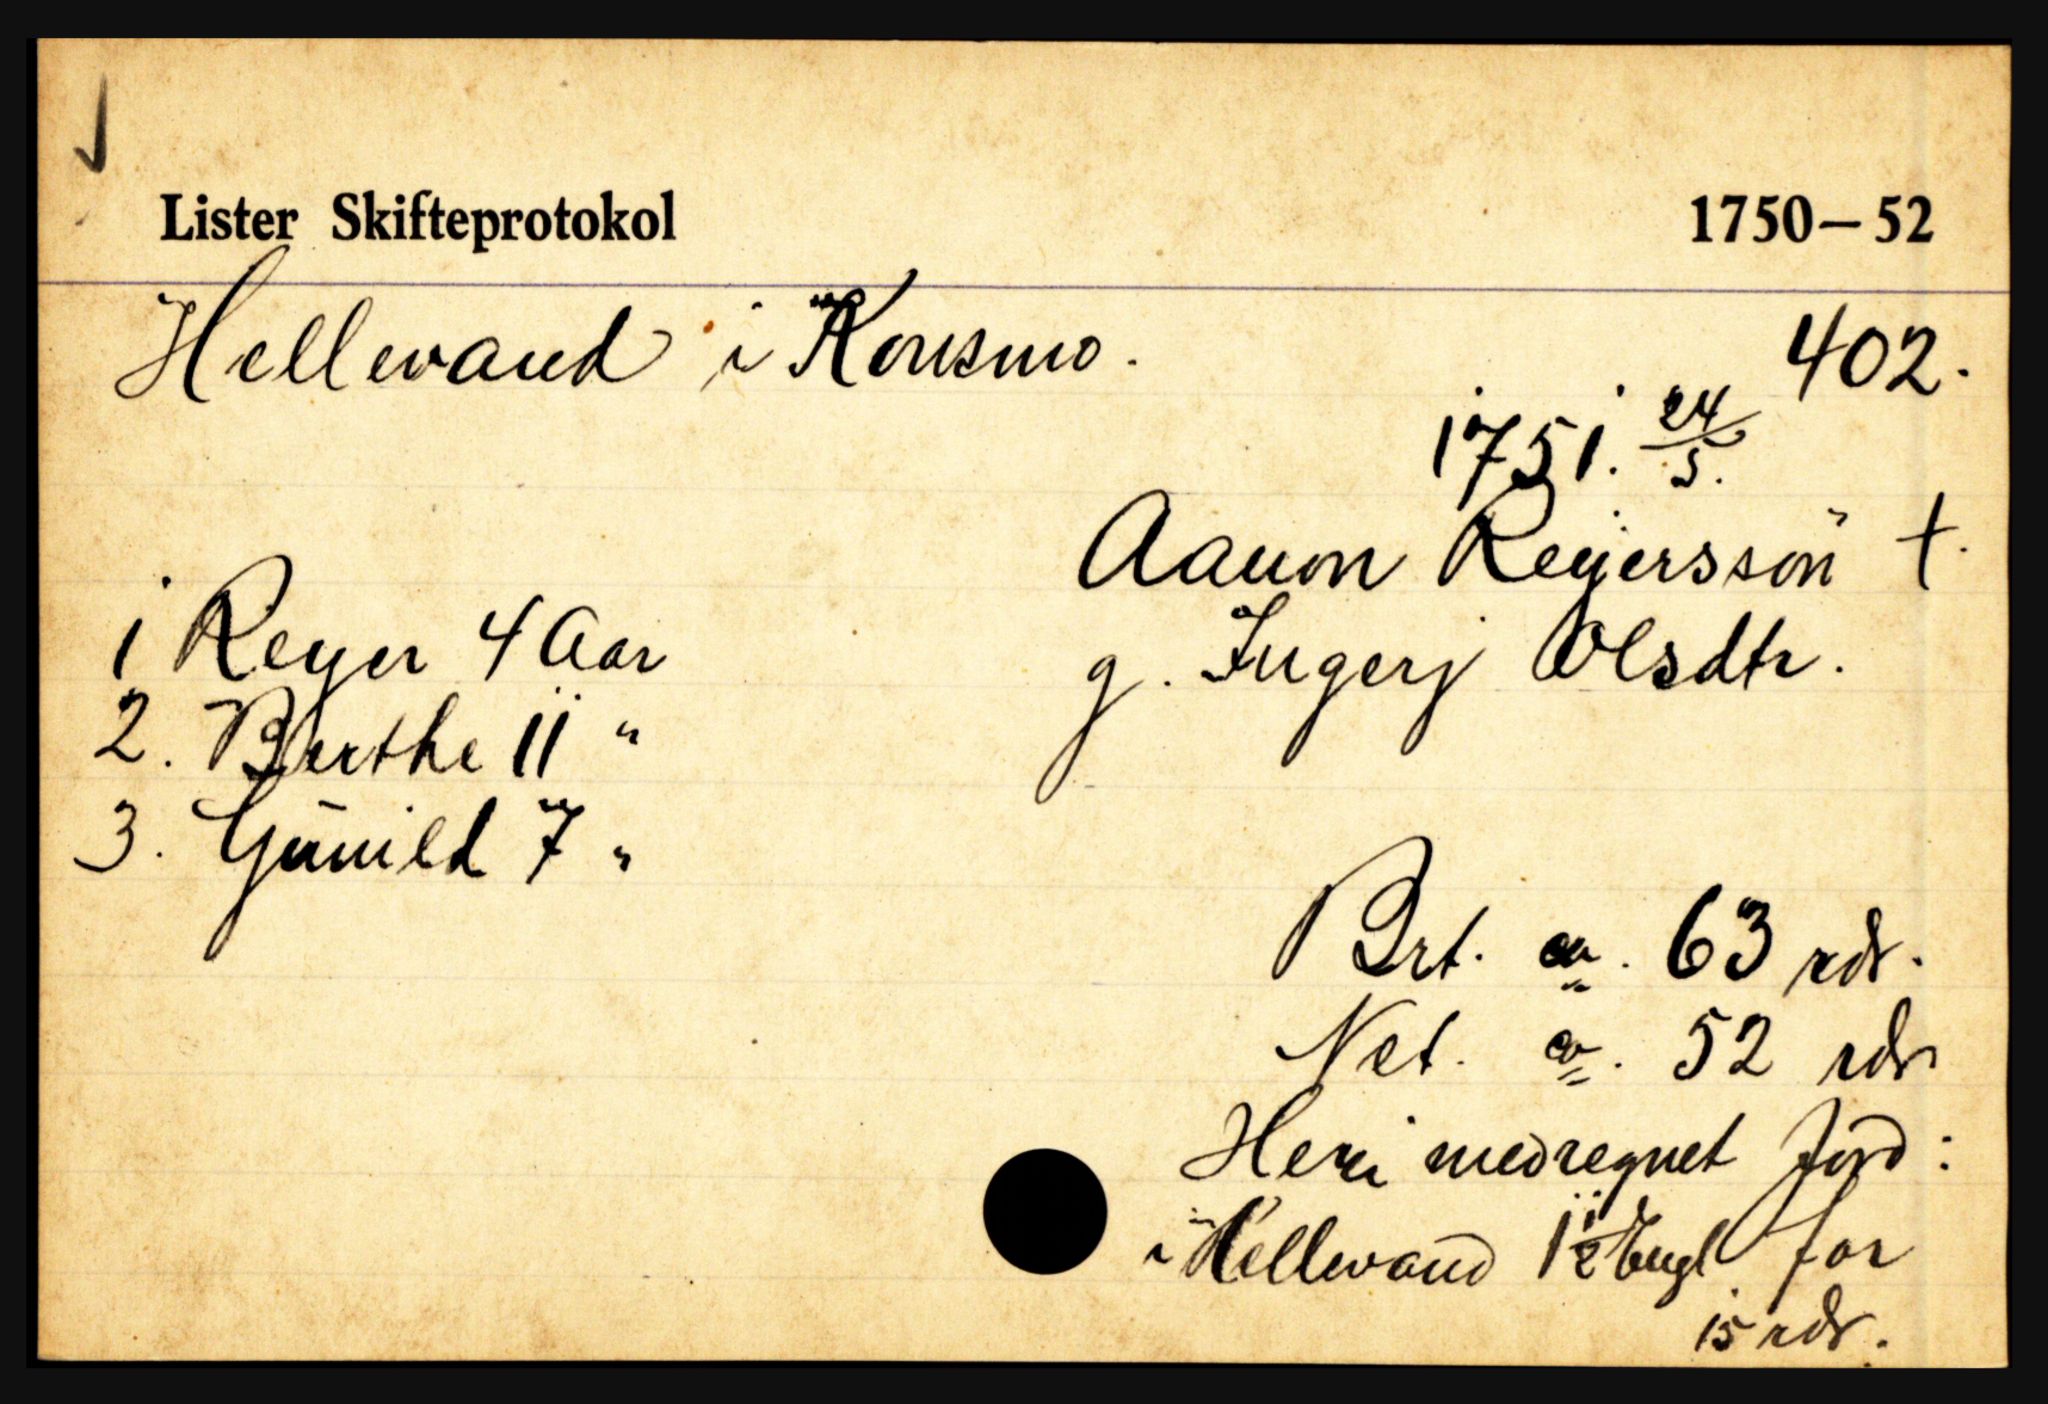 Lister Skifteprotokol 1750–52
Hellevand i Konsmo. 402.
1751. 24/5.
Aanon Reyersson †.
g. Ingerj Olsdtr.
1 Reyer 4 Aar
2. Berthe 11 "
3. Gunild 7 "
Brt. ca. 63 rdr.
Net. ca. 52 rdr
Heri medregnet Jord:
i Hellevand 1 1/2 Engl for
15 rdr.